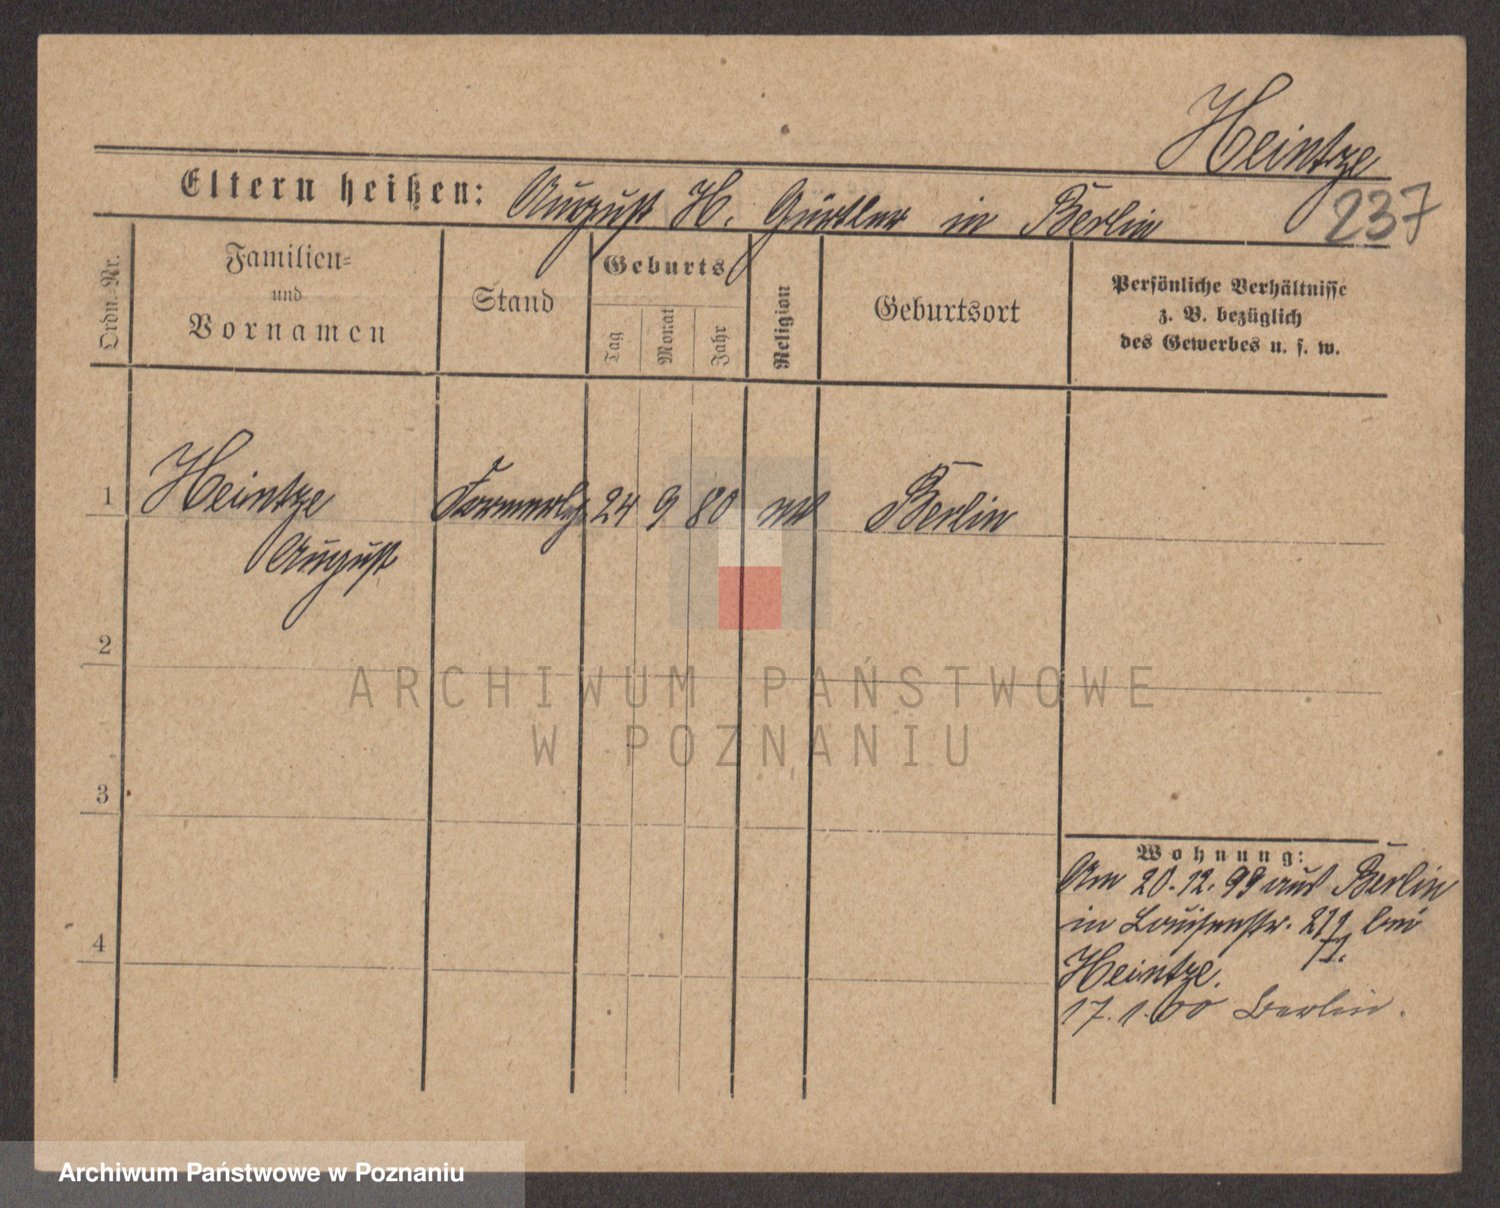 Heintze
237
Eltern heißen: August H. Gürtler in Berlin
Ordn.-Nr.
Familien-
und
Vornamen
Stand
Geburts
Tag
Monat
Jahr
Religion
Geburtsort
Persönliche Verhältnisse
z. B. bezüglich
des Gewerbes u. s. w.
1 Heintze 24 9 80 Berlin
August
2
3
4
Wohnung:
Am 20.12.99 aus Berlin
in Louisenstr. bei
Heintze.
17.1.00 Berlin.
ARCHIWUM PAŃSTWOWE
W POZNANIU
Archiwum Państwowe w Poznaniu